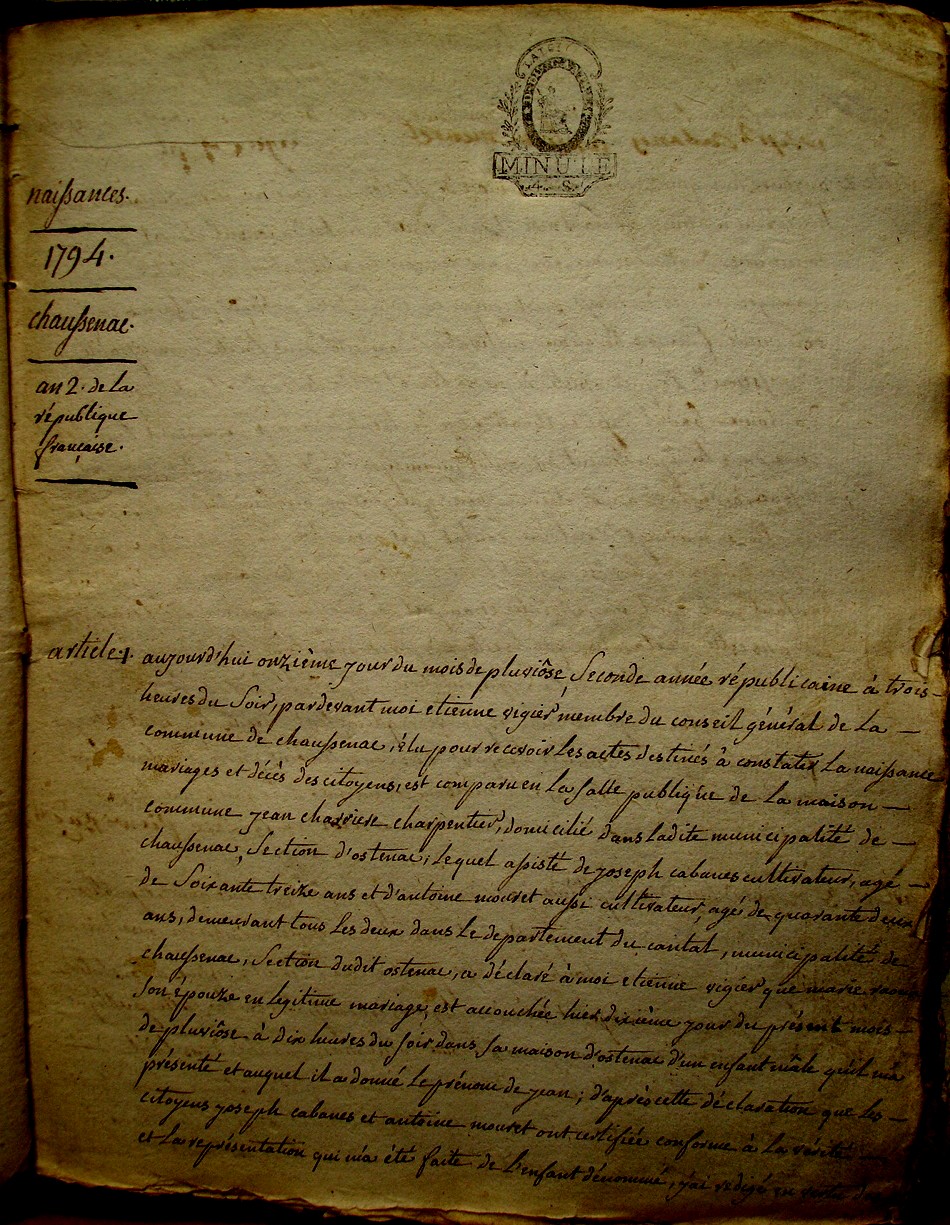 MINUTE
4. S.
naissances.
1794.
chaussenac.
an 2. de la
république
française.
article 1. aujourd'hui onzième jour du mois de pluviôse, seconde année républicaine à trois
heures du soir, pardevant moi etienne vigier membre du conseil général de la
commune de chaussenac, élu pour recevoir les actes destinés à constater la naissance
mariages et décès des citoyens, est comparu en la salle publique de la maison
commune jean charriere charpentier, domicilié dans ladite municipalité de
chaussenac, section d'ostenac, lequel assisté de joseph cabanes cultivateur, agé
de soixante treize ans et d'antoine mouret aussi cultivateur, agé de quarante deux
ans, demeurant tous les deux dans le departement du cantal, municipalité de
chaussenac, section dudit ostenac, a déclaré à moi etienne vigier que marie
son épouze en legitime mariage, est accouchée hier dixième jour du présent mois
de pluviôse à dix heures du soir dans sa maison d'ostenac d'un enfant mâle qu'il m'a
présenté et auquel il a donné le prénom de jean; d'après cette déclaration que les
citoyens joseph cabanes et antoine mouret ont certifiée conforme à la vérité
et la représentation qui m'a été faite de l'enfant dénommé, j'ai redigé en vertu